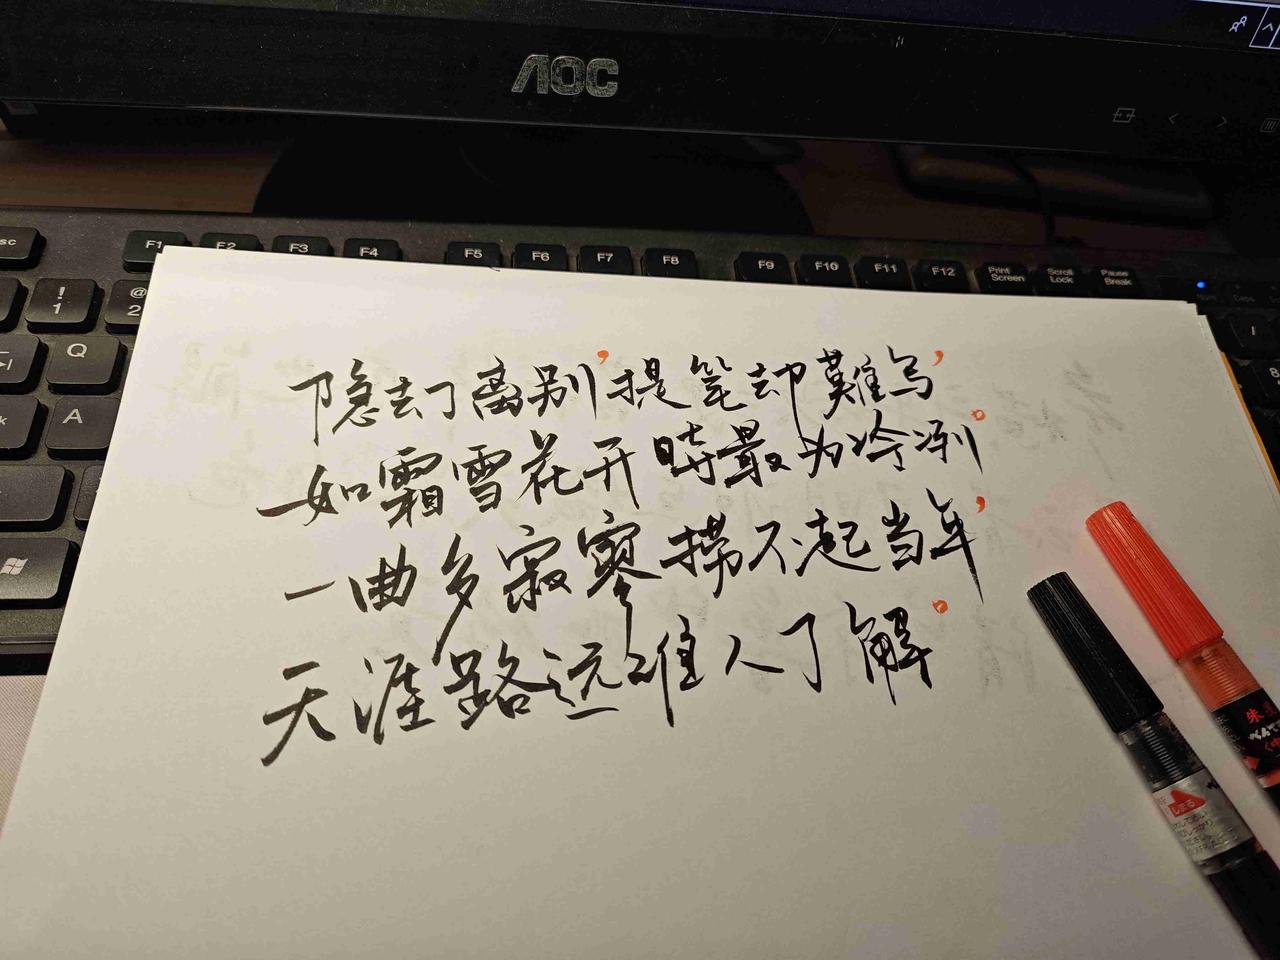 AOC
sc F1 F2 F3 F4 F5 F6 F7 F8 F9 F10 F11 F12 Print Screen Scroll Lock Pause Break
! 1 @ 2
Q
A
隐去了离别，提笔却難写，
如霜雪花开時最为冷冽。
一曲多寂寥捞不起当年，
天涯路远谁人了解。
しまる